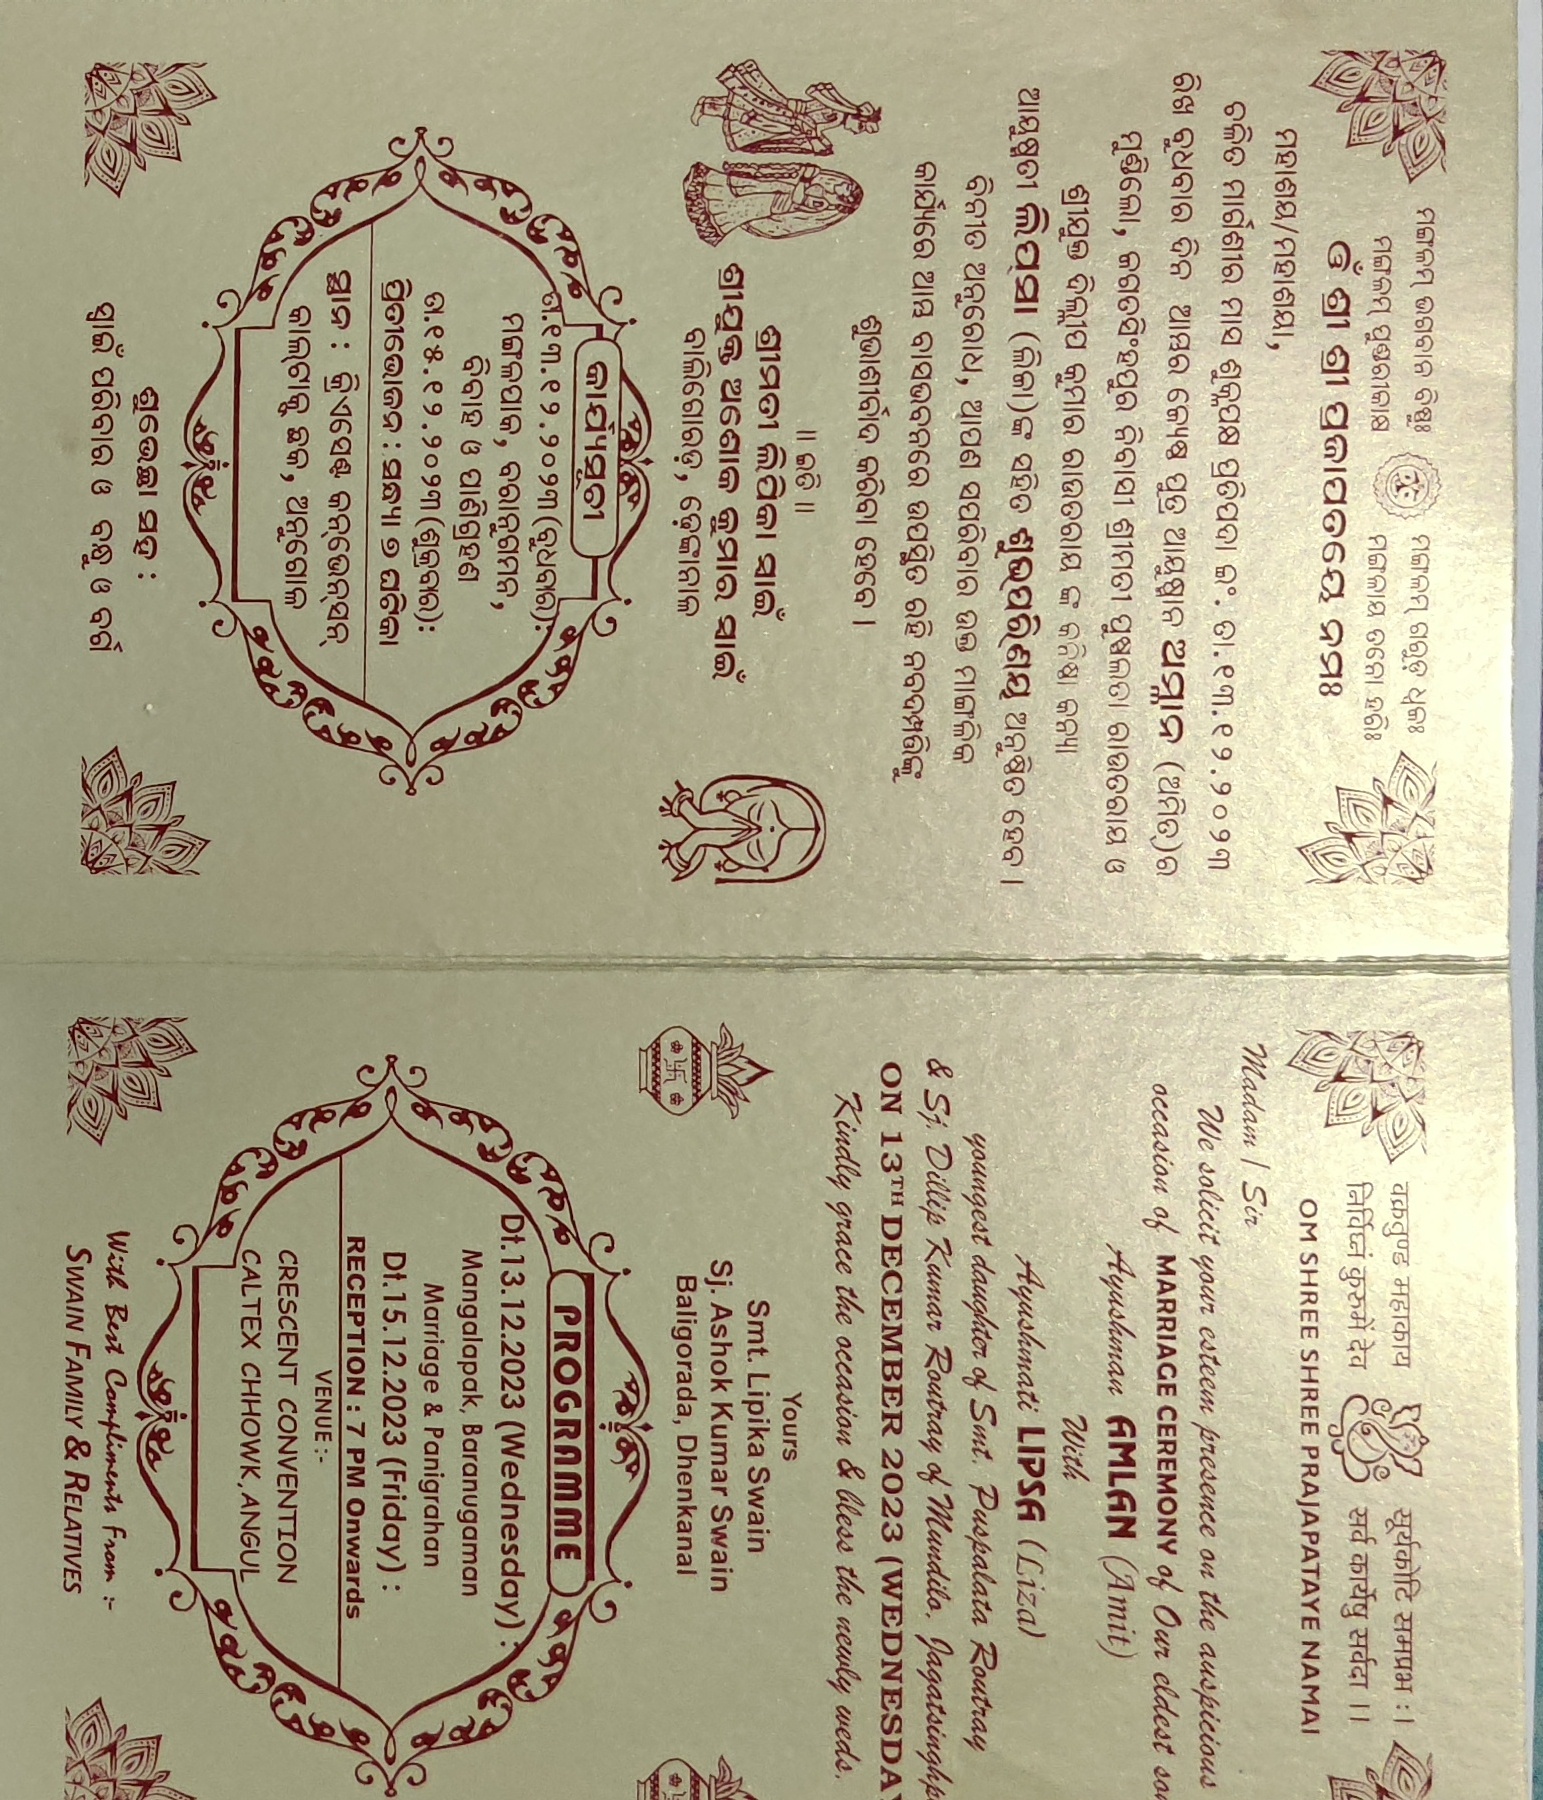 ମଙ୍ଗଳମ୍ ଭଗବାନ ବିଷ୍ଣୁଃ ମଙ୍ଗଳମ୍ ମଧୁସୂଦନଃ
ମଙ୍ଗଳମ୍ ପୁଣ୍ଡରୀକାକ୍ଷ
ଓଁ ଶ୍ରୀ ଶ୍ରୀ ପ୍ରଜାପତୟେ ନମଃ
ମହାଶୟ/ମହାଶୟା,
ଚଳିତ ମାର୍ଗଶୀର ମାସ ଶୁକ୍ଳପକ୍ଷ ପ୍ରତିପଦା ତା.୧୩.୧୨.୨୦୨୩
ରିଖ ବୁଧବାର ଦିନ ଆମର ଜ୍ୟେଷ୍ଠ ପୁତ୍ର ଆୟୁଷ୍ମାନ ଅମ୍ଳାନ (ଅମିତ)ର
ମୁଣ୍ଡିଲୋ, ଜଗତସିଂହପୁର ନିବାସୀ ଶ୍ରୀମତୀ ପୁଷ୍ପଲତା ରାଉତରାୟ ଓ
ଶ୍ରୀଯୁକ୍ତ ଦିଲ୍ଲୀପ କୁମାର ରାଉତରାୟ ଙ୍କ କନିଷ୍ଠା କନ୍ୟା
ଆୟୁଷ୍ମତୀ ଲିପ୍ସା (ଲିଜା)ଙ୍କ ସହିତ ଶୁଭପରିଣୟ ଅନୁଷ୍ଠିତ ହେବ ।
ଶୁଭାଶୀର୍ବାଦ କରିବା ହେବେ ।
॥ ଇତି ॥
ଶ୍ରୀମତୀ ଲିପିକା ସ୍ୱାଇଁ
ଶ୍ରୀଯୁକ୍ତ ଅଶୋକ କୁମାର ସ୍ୱାଇଁ
ବାଲିଗୋରଡ଼, ଢେଙ୍କାନାଳ
କାର୍ଯ୍ୟସୂଚୀ
ତା.୧୩.୧୨.୨୦୨୩(ବୁଧବାର):
ମଙ୍ଗଳପାକ, ବରାନୁଗମନ,
ବିବାହ ଓ ପାଣିଗ୍ରହଣ
ତା.୧୫.୧୨.୨୦୨୩(ଶୁକ୍ରବାର):
ପ୍ରୀତିଭୋଜନ : ସନ୍ଧ୍ୟା ୭ ଘଟିକା
ସ୍ଥାନ : କ୍ରିସେଣ୍ଟ କନ୍‌ଭେନ୍‌ସନ୍
କାଲଟେକ୍ସ ଛକ, ଅନୁଗୋଳ
ଶୁଭେଚ୍ଛା ସହ :
ସ୍ୱାଇଁ ପରିବାର ଓ ବନ୍ଧୁ ବର୍ଗ
वक्रतुण्ड महाकाय सुर्यकोटि समप्रभः।
निर्विघ्नं कुरुमे देव सर्व कार्येषु सर्वदा ।।
OM SHREE SHREE PRAJAPATAYE NAMAH
Madam / Sir
We solicit your esteem presence on the auspicious
occasion of MARRIAGE CEREMONY of Our eldest son
Ayushman AMLAN (Amit)
With
Ayushmati LIPSA (Liza)
youngest daughter of Smt. Puspalata Routray
& Sj. Dillip Kumar Routray of Mundilo, Jagatsinghp
ON 13TH DECEMBER 2023 (WEDNESDAY
Kindly grace the occasion & bless the newly weds.
Yours
Smt. Lipika Swain
Sj. Ashok Kumar Swain
Baligorada, Dhenkanal
PROGRAMME
Dt.13.12.2023 (Wednesday) :
Mangalapak, Baranugaman
Marriage & Panigrahan
Dt.15.12.2023 (Friday) :
RECEPTION : 7 PM Onwards
VENUE :-
CRESCENT CONVENTION
CALTEX CHHOWK, ANGUL
With Best Compliments From :-
SWAIN FAMILY & RELATIVES